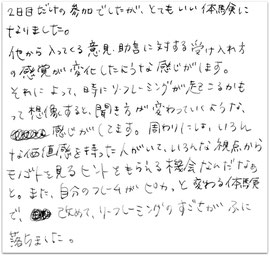 2日目だけの参加でしたが、とてもいい体験に
なりました。
他から入ってくる意見・助言に対する受け入れ方
の感覚が変化したような感じがします。
それによって、時にリ・フレーミングが起こるかも
って想像すると、聞き方が変わっていくような、
感じがしてます。周りにしよ、いろん
な価値感を持った人がいて、いろんな視点から
モノゴトを見るヒントともらえる機会なんだなぁ
と。また、自分のフレームがピカッと変わる体験
で、改めて、リ・フレーミングのすごさがふに
落ちました。